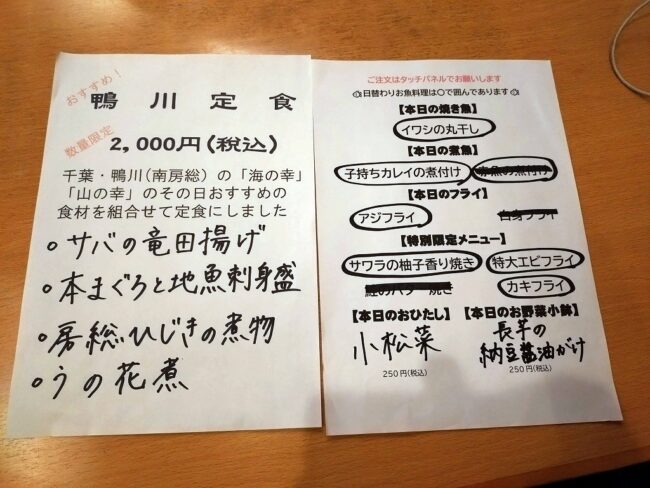 おすすめ！
鴨川定食
数量限定
2,000円(税込)
千葉・鴨川(南房総)の「海の幸」
「山の幸」のその日おすすめの
食材を組合せて定食にしました
・サバの竜田揚げ
・本まぐろと地魚刺身盛
・房総ひじきの煮物
・うの花煮
ご注文はタッチパネルでお願いします
日替わりお魚料理は○で囲んであります
【本日の焼き魚】
イワシの丸干し
【本日の煮魚】
子持ちカレイの煮付け 赤魚の煮付け
【本日のフライ】
アジフライ 白身フライ
【特別限定メニュー】
サワラの柚子香り焼き 特大エビフライ
鮭のバター焼き カキフライ
【本日のおひたし】
小松菜
250円(税込)
【本日のお野菜小鉢】
長芋の
納豆醤油がけ
250円(税込)